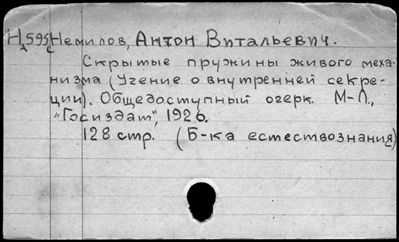 Н595 Немилов, Антон Витальевич.
Скрытые пружины живого меха-
низма (Учение о внутренней секре-
ции). Общедоступный очерк. М-Л.,
"Госиздат", 1926.
128 стр. (Б-ка естествознания)